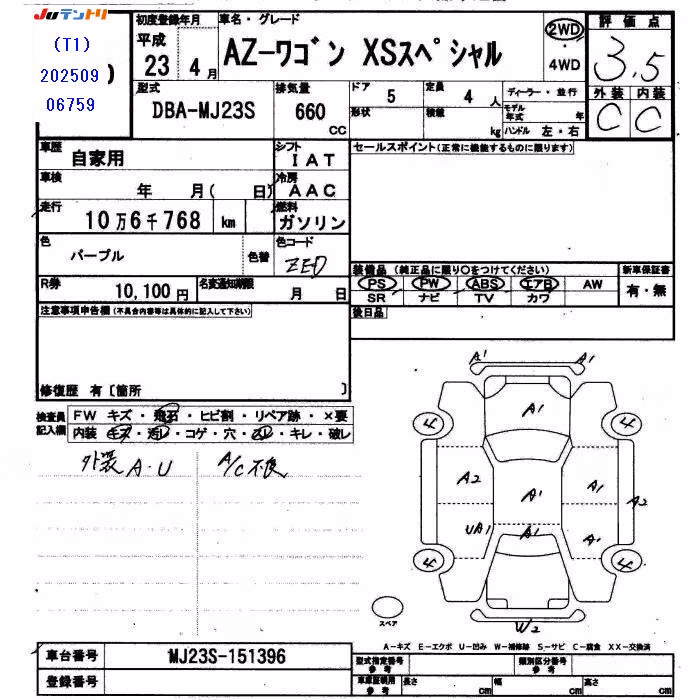 Juテントリ
(T1)
202509
06759
)
初度登録年月
平成
23 4月
車名・グレード
AZ-ワゴン XSスペシャル
2WD
4WD
評価点
3.5
外装 内装
C C
型式
DBA-MJ23S
排気量
660
CC
ドア 5
形状
定員 4 人
積載 kg
ディーラー・並行
モデル年式 年
ハンドル 左・右
車歴
自家用
シフト
IAT
車検
年 月( 日)
冷房
AAC
走行
10万6千768 km
燃料
ガソリン
色
パープル
色替
色コード
ZED
R券
10,100円
名変通知期限
月 日
セールスポイント(正常に機能するものに限ります)
装備品 (純正品に限り○をつけてください)
PS PW ABS エアB AW
SR ナビ TV カワ
新車保証書
有・無
後日品
注意事項申告欄(不具合内容等は具体的に記入して下さい)
修復歴 有〔箇所 〕
検査員記入欄
FW キズ・飛石・ヒビ割・リペア跡・×要
内装 キズ・汚レ・コゲ・穴・ムレ・キレ・破レ
外装 A・U
A/C不良
A1 A1
A1
4 4
A2 A1 A1 A2
UA1 A1 A1
4 4
スペア
W2
A-キズ E-エクボ U-凹み W-補修跡 S-サビ C-腐食 XX-交換済
車台番号
MJ23S-151396
登録番号
型式指定番号
参考
類別区分番号
参考
車庫証明用
参考
長さ cm 幅 cm 高さ cm